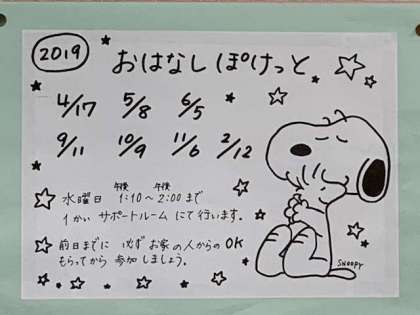 2019 おはなしぽけっと
4/17 5/8 6/5
9/11 10/9 11/6 2/12
水曜日 午後1:10〜午後2:00まで
1かい サポートルームにて行います。
前日までに 必ずお家の人からのOK
もらってから 参加しましょう。
SNOOPY